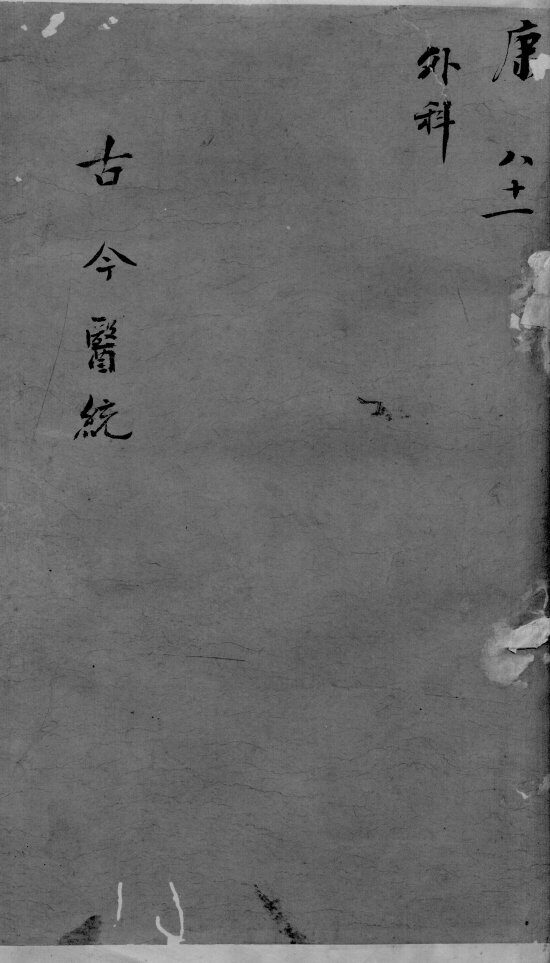 康 八十一
外科
古今醫統